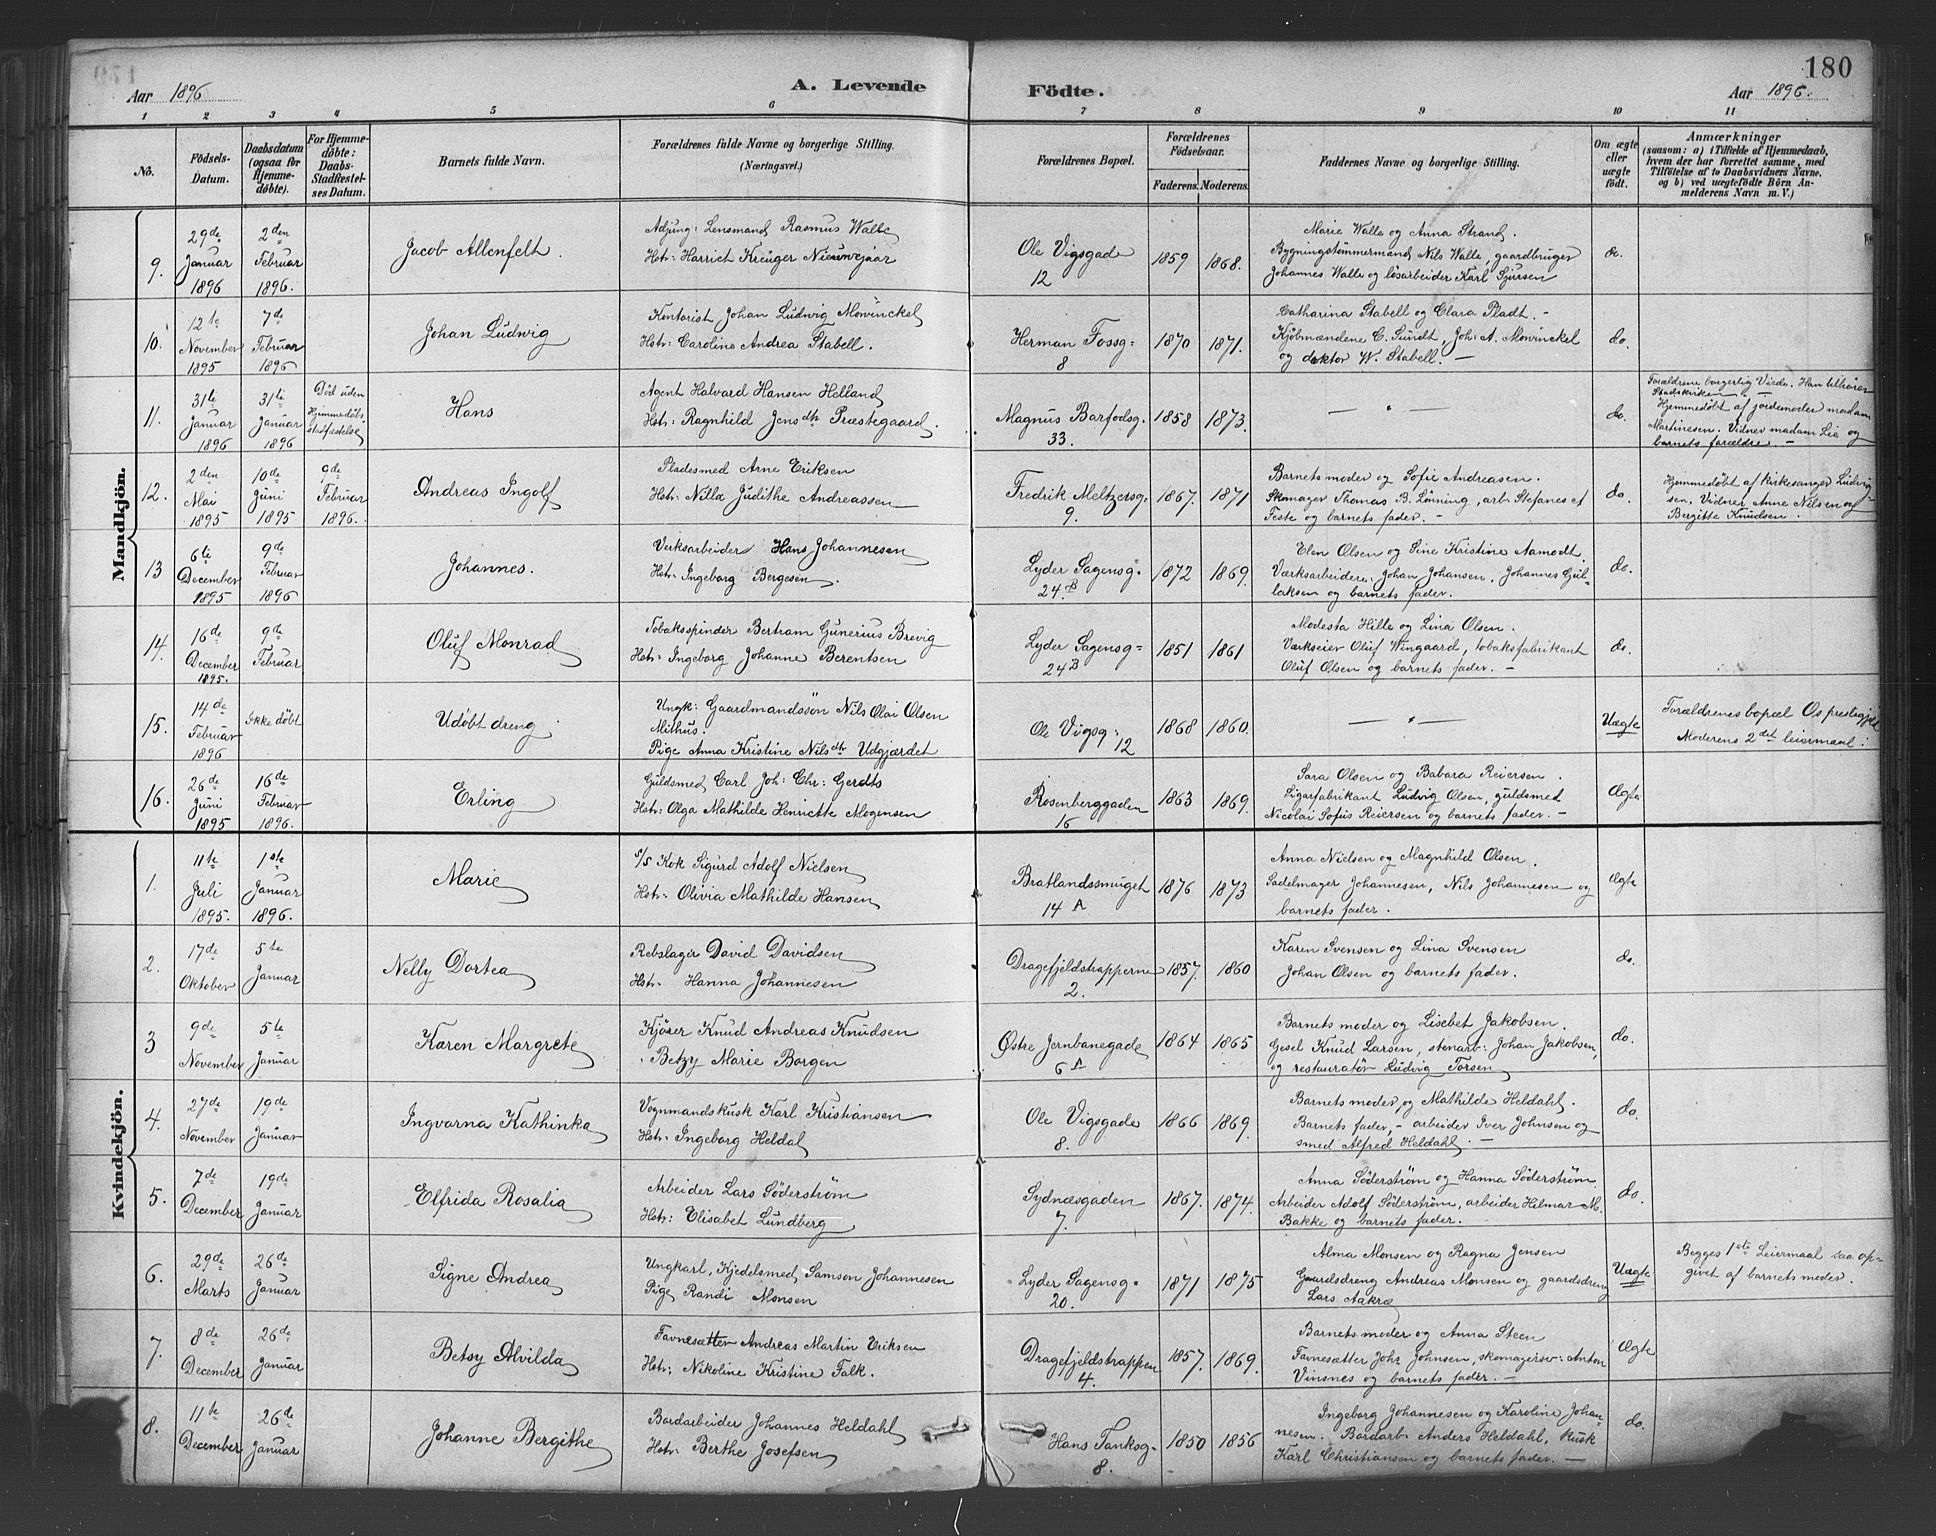 180
Aar 1896
A. Levende Födte.
Aar 1896.
1 2 3 4 5 6 7 8 9 10 11
No.
Födsels-Datum.
Daabsdatum (ogsaa for Hjemme-döbte).
For Hjemme-döbte: Daabs-Stadfæstel-ses Datum.
Barnets fulde Navn.
Forældrenes fulde Navne og borgerlige Stilling.
(Næringsvei.)
Forældrenes Bopæl.
Forældrenes Födselsaar.
Faderens. Moderens.
Faddernes Navne og borgerlige Stilling.
Om ægte eller uægte födt.
Anmærkninger
(saasom: a) i Tilfælde af Hjemmedaab, hvem der har forrettet samme, med Tilföielse af to Daabsvidners Navne, og b) ved uægtefödte Börn An-melderens Navn m. V.)
Mandkjön.
9. 29de Januar 1896
2den Februar 1896.
Jacob Allenfelt.
Adjung: Lensmand Rasmus Walle
Hstr: Harriet Kreüger Nieuwejaar
Ole Vigsgade 12
1859 1868.
Marie Walle og Anna Strand.
Bygningstømmermand Nils Walle, gaardbruger
Johannes Walle og lösarbeider Karl Sjursen
do.
10. 12te November 1895
7de Februar 1896
Johan Ludwig
Kontorist Johan Ludwig Mowinckel
Hstr: Caroline Andrea Stabell.
Herman Fossg: 8
1870 1871.
Catharina Stabell og Clara Pladt. -
Kjöbmændene C. Sundt, Joh: A. Mowinckel
og doktor W. Stabell. —
do.
11. 31te Januar 1896
31te Januar 1896
Död uden Hjemmedöbs stadfædelse
Hans
Agent Halvard Hansen Helland
Hstr: Ragnhild Jensdtr Præstegaard.
Magnus Barfodsg. 33.
1858 1873.
— " —
do.
Forældrene borgerlig Viede. Han tilhörer
Stadskirken. —
Hjemmedöbt af jordemoder madam
Martinesen. Vidner madam Lie og
barnets forældre —
12. 2den Mai 1895
10de Juni 1895
9de Februar 1896.
Andreas Ingolf
Pladesmed Arne Eriksen
Hstr: Nilla Judithe Andreassen
Fredrik Meltzersg. 9.
1867. 1871
Barnets moder og Sofie Andreasen.
Skomager Thomas B. Löning, arb: Stefanes
Feste og barnets fader. -
do.
Hjemmedöbt af kirkesanger Ludvig-
sen. Vidner Anne Nilsen og
Bergitte Knudsen.
13 6te December 1895
9de Februar 1896
Johannes.
Verksarbeider Hans Johannesen
Hstr: Ingeborg Bergesen.
Lyder Sagensg: 24B
1872 1869.
Elen Olsen og Sine Kristine Aamodt.
Værksarbeidere Johan Johansen, Johannes Gul-
laksen og barnets fader.
do.
14. 16de December 1895.
9de Februar
Oluf Monrad
Tobaksspinder Bertram Gunerius Brevig
Hstr: Ingeborg Johanne Berentsen
Lyder Sagensg: 24B
1851 1861
Modesta Hille og Lina Olsen.
Værkseier Oluf Wingaard, tobaksfabrikant
Oluf Olsen og barnets fader. -
do.
15. 14de Februar 1896
Ikke döbt
Udöbt dreng
Ungk: Gaardmandssön Nils Olai Olsen
Mithus.
Pige Anna Kristine Nilsdtr Udgjærdet
Ole Vigsg: 12
1868 1860.
— " —
Uægte
Forældrenes bopæl Os prestegjeld
Moderens 2det leiermaal.
16. 26de Juni 1895
16de Februar 1896.
Erling
Guldsmed Carl Joh: Chr: Gerdts
Hstr: Olga Mathilde Henriette Mogensen
Rosenberggaden 16
1863 1869.
Sara Olsen og Babara Reiersen.
Sigarfabrikant Ludvig Olsen, guldsmed
Nicolai Sofus Reiersen og barnets fader. -
Ægte
Kvindekjön.
1. 11te Juli 1895.
1ste Januar 1896.
Marie
S/S Kok Sigurd Adolf Nielsen
Hstr: Olivia Mathilde Hansen
Bratlandssmuget 14 A
1876 1873
Anna Nielsen og Magnhild Olsen.
Sadelmager Johannesen, Nils Johannesen og
barnets fader.
Ægte
2. 17de Oktober
5te Januar
Nelly Dortea
Rebslager David Davidsen
Hstr. Hanna Johannesen
Dragefjeldstrapperne 2.
1857. 1860
Karen Svensen og Lina Svensen
Johan Olsen og barnets fader.
do.
3 9de November
5te Januar
Karen Margrete
Kjörer Knud Andreas Knudsen
" Betzy Marie Borgen
Østre Jernbanegade 6 A
1864 1865
Barnets moder og Lisebet Jakobsen.
Gesel Knud Larsen, stenarb: Johan Jakobsen,
og restauratör Ludvig Torsen
do.
4. 27de November
19de Januar
Ingvarna Kathinka
Vognmandskusk Karl Kristiansen
Hstr: Ingeborg Heldal
Ole Vigsgade 8.
1866 1869.
Barnets moder og Mathilde Heldahl.
Barnets fader, - arbeider Iver Johnsen og
smed Alfred Heldahl. —
do.
5. 7de December
19de Januar
Elfrida Rosalia
Arbeider Lars Söderström
Hstr: Elisabet Lundberg
Sydnæsgaden 7.
1867. 1874.
Anna Söderström og Hanna Söderström.
Arbeider Adolf Söderström, arbeider Hilmar M.
Bakke og barnets fader.
do.
6. 29de Marts
26de Januar
Signe Andrea
Ungkarl, Kjedelsmed Samson Johannesen
Pige Randi Monsen
Lyder Sagensg- 20.
1871 1875
Alma Monsen og Ragna Jensen
Gaardsdreng Andreas Monsen og gaardsdreng
Lars Aakra
Uægte
Begges 1ste Leiermaal saa op-
givet af barnets moder.
7. 8de December
26de Januar
Betsy Alvilda
Favnesætter Andreas Martin Eriksen
Hstr: Nikoline Kristine Falk.
Dragefjeldstrappen 4.
1857. 1869.
Barnets moder og Anna Steen
Favnesætter Johs Johnsen, skomagersv: Anton
Vinsnes og barnets fader. —
Ægte
8. 11te December
26de Januar
Johanne Bergithe
Bordarbeider Johannes Heldahl
Hstr: Berthe Josefsen
Hans Tanksg- 8.
1850 1856
Ingeborg Johannesen og Karoline Johan-
nesen. Bordarb: Anders Heldahl, kusk
Karl Christiansen og barnets fader. —
do.